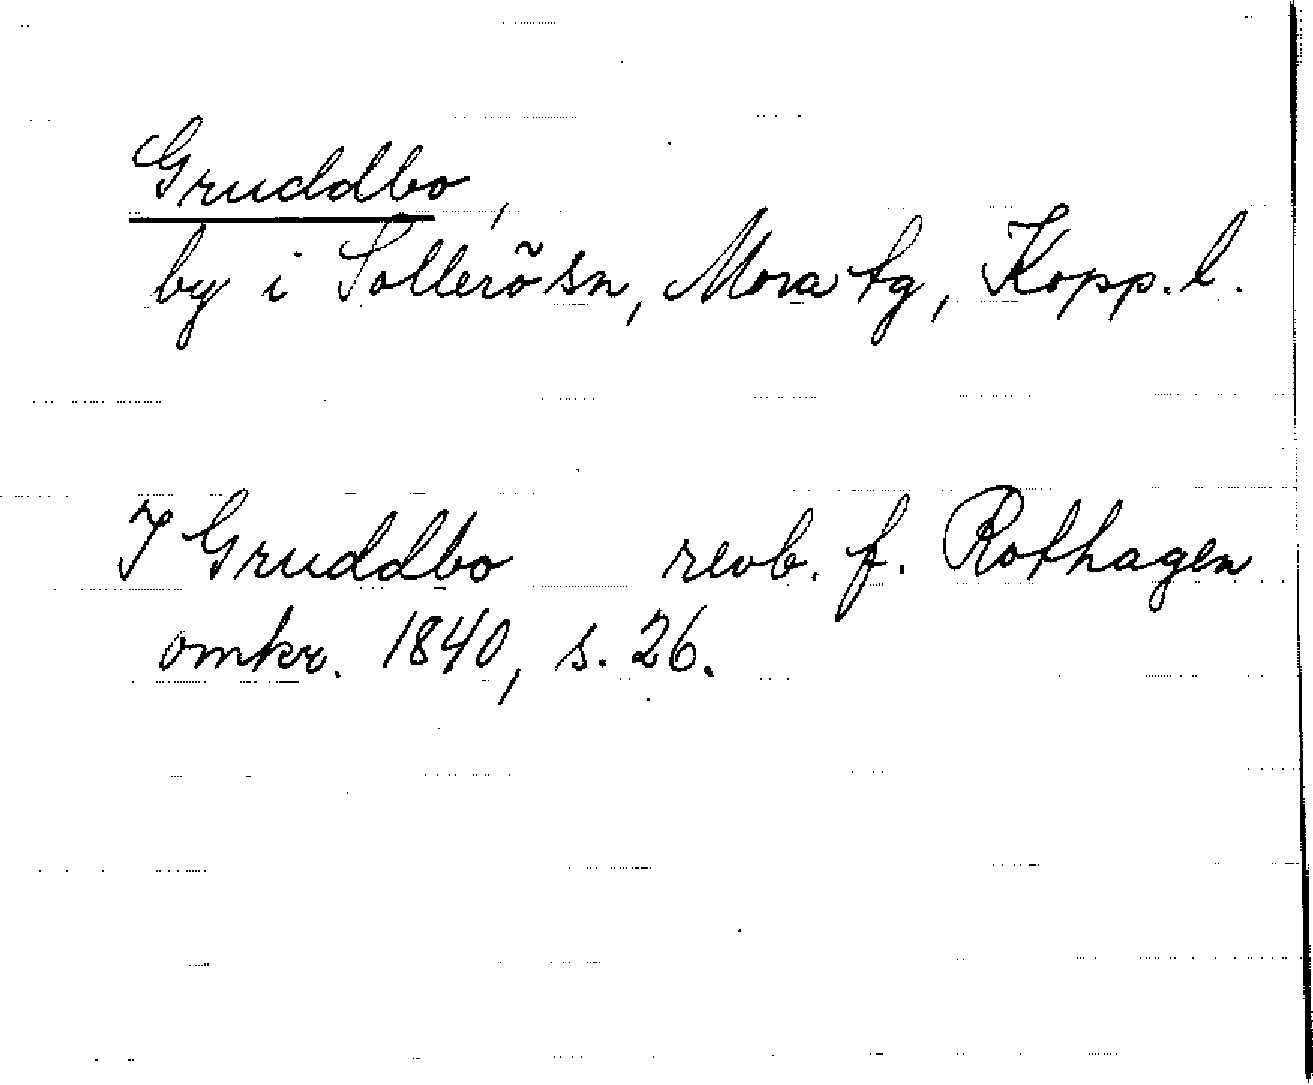 Gruddbo,
by i Sollerö sn, Mora tg, Kopp. l.
I Gruddbo revb. f. Rothagen
omkr. 1840, s. 26.